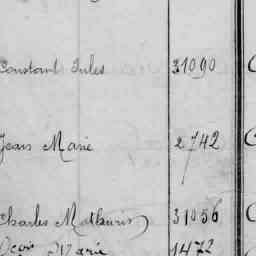 Constant Jules 31090
Jean Marie 2742
Charles Mathurin 31056
Marie 1472